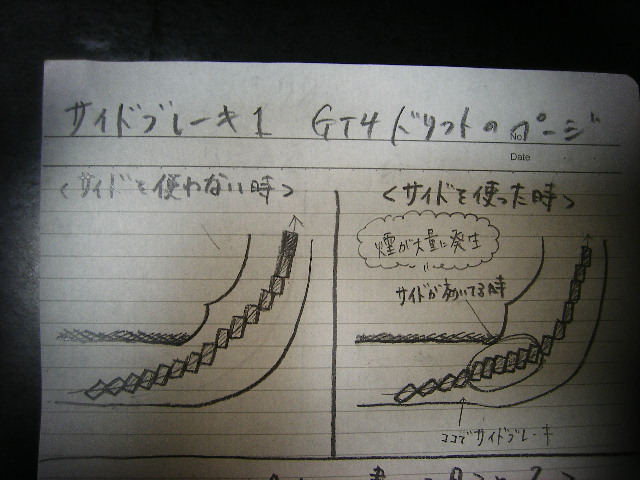 サイドブレーキ1 GT4ドリフトのページ
No.
Date
<サイドを使わない時>
<サイドを使った時>
煙が大量に発生
!!
サイドが効いてる時
ココでサイドブレーキ